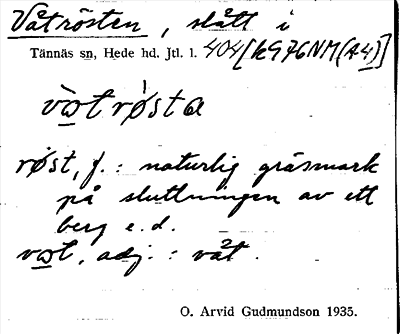 Våtrösten, slått i
Tännäs sn, Hede hd. Jtl. l. 404[k976NM(A4)]
vɷ̀t rø̀sta
røst, f. : naturlig gräsmark
på sluttningen av ett
berg e.d.
vɷt, adj. : våt.
O. Arvid Gudmundson 1935.